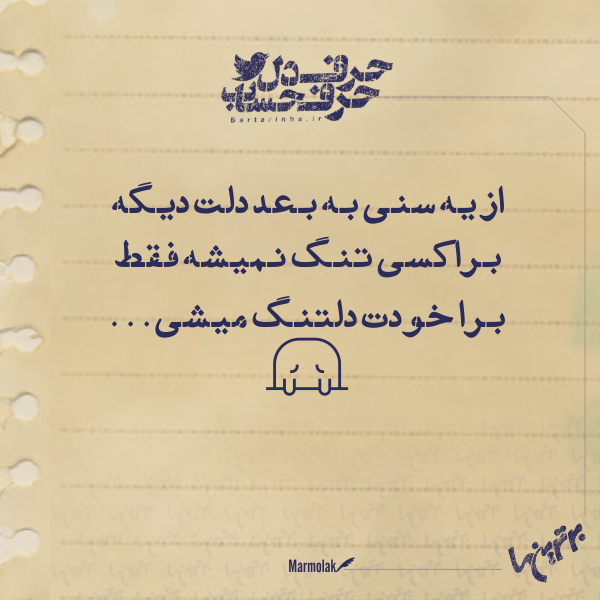 حرف دل
حرف حساب
Bartarinha.ir
از یه سنی به بعد دلت دیگه
برا کسی تنگ نمیشه فقط
برا خودت دلتنگ میشی...
Marmolak
برترین‌ها